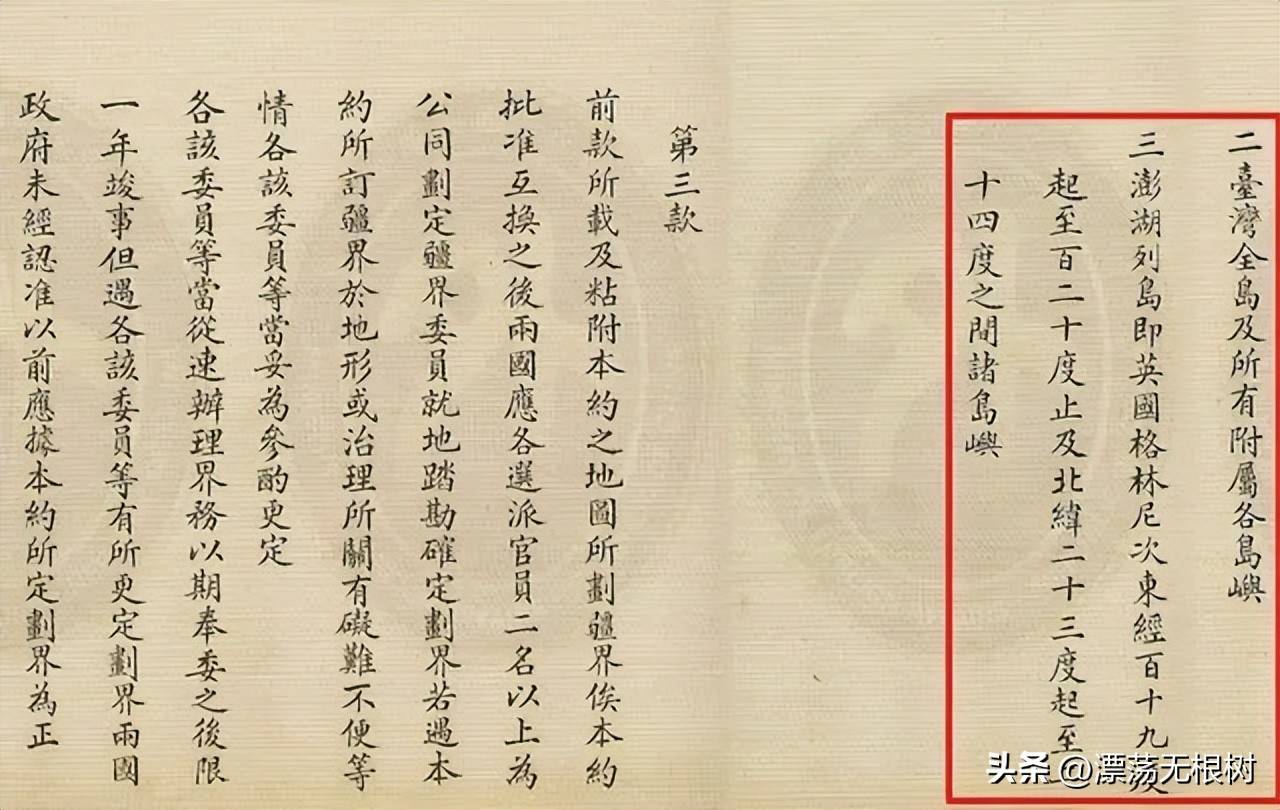 二臺灣全島及所有附屬各島嶼
三澎湖列島即英國格林尼次東經百十九
起至百二十度止及北緯二十三度起至
十四度之間諸島嶼
第三款
前款所載及粘附本約之地圖所劃疆界俟本約
批准互換之後兩國應各選派官員二名以上為
公同劃定疆界委員就地踏勘確定劃界若遇本
約所訂疆界於地形或治理所關有礙難不便等
情各該委員等當妥為參酌更定
各該委員等當從速辦理界務以期奉委之後限
一年竣事但遇各該委員等有所更定劃界兩國
政府未經認准以前應據本約所定劃界為正
头条 @漂荡无根树